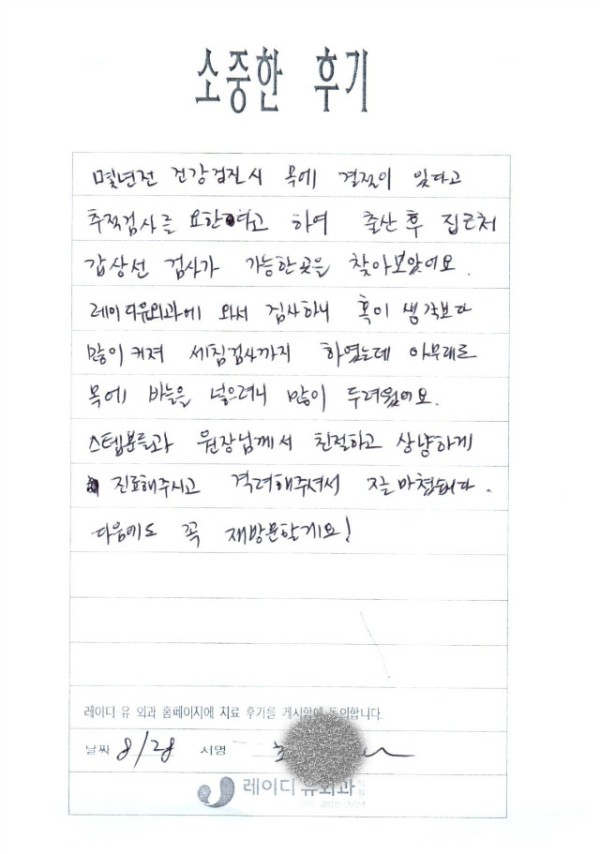 소중한 후기
몇년전 건강검진시 목에 결절이 있다고
추적검사를 요한다고 하여 출산 후 집근처
갑상선 검사가 가능한곳을 찾아보았어요.
레이디유외과에 와서 검사하니 혹이 생각보다
많이 커져 세침검사까지 하였는데 아무래도
목에 바늘을 넣으려니 많이 두려웠어요.
스텝분들과 원장님께서 친절하고 상냥하게
진료해주시고 격려해주셔서 잘 마쳤습니다.
다음에도 꼭 재방문할게요!
레이디 유 외과 홈페이지에 치료 후기를 게시함에 동의합니다.
날짜 8/28 서명
레이디유외과